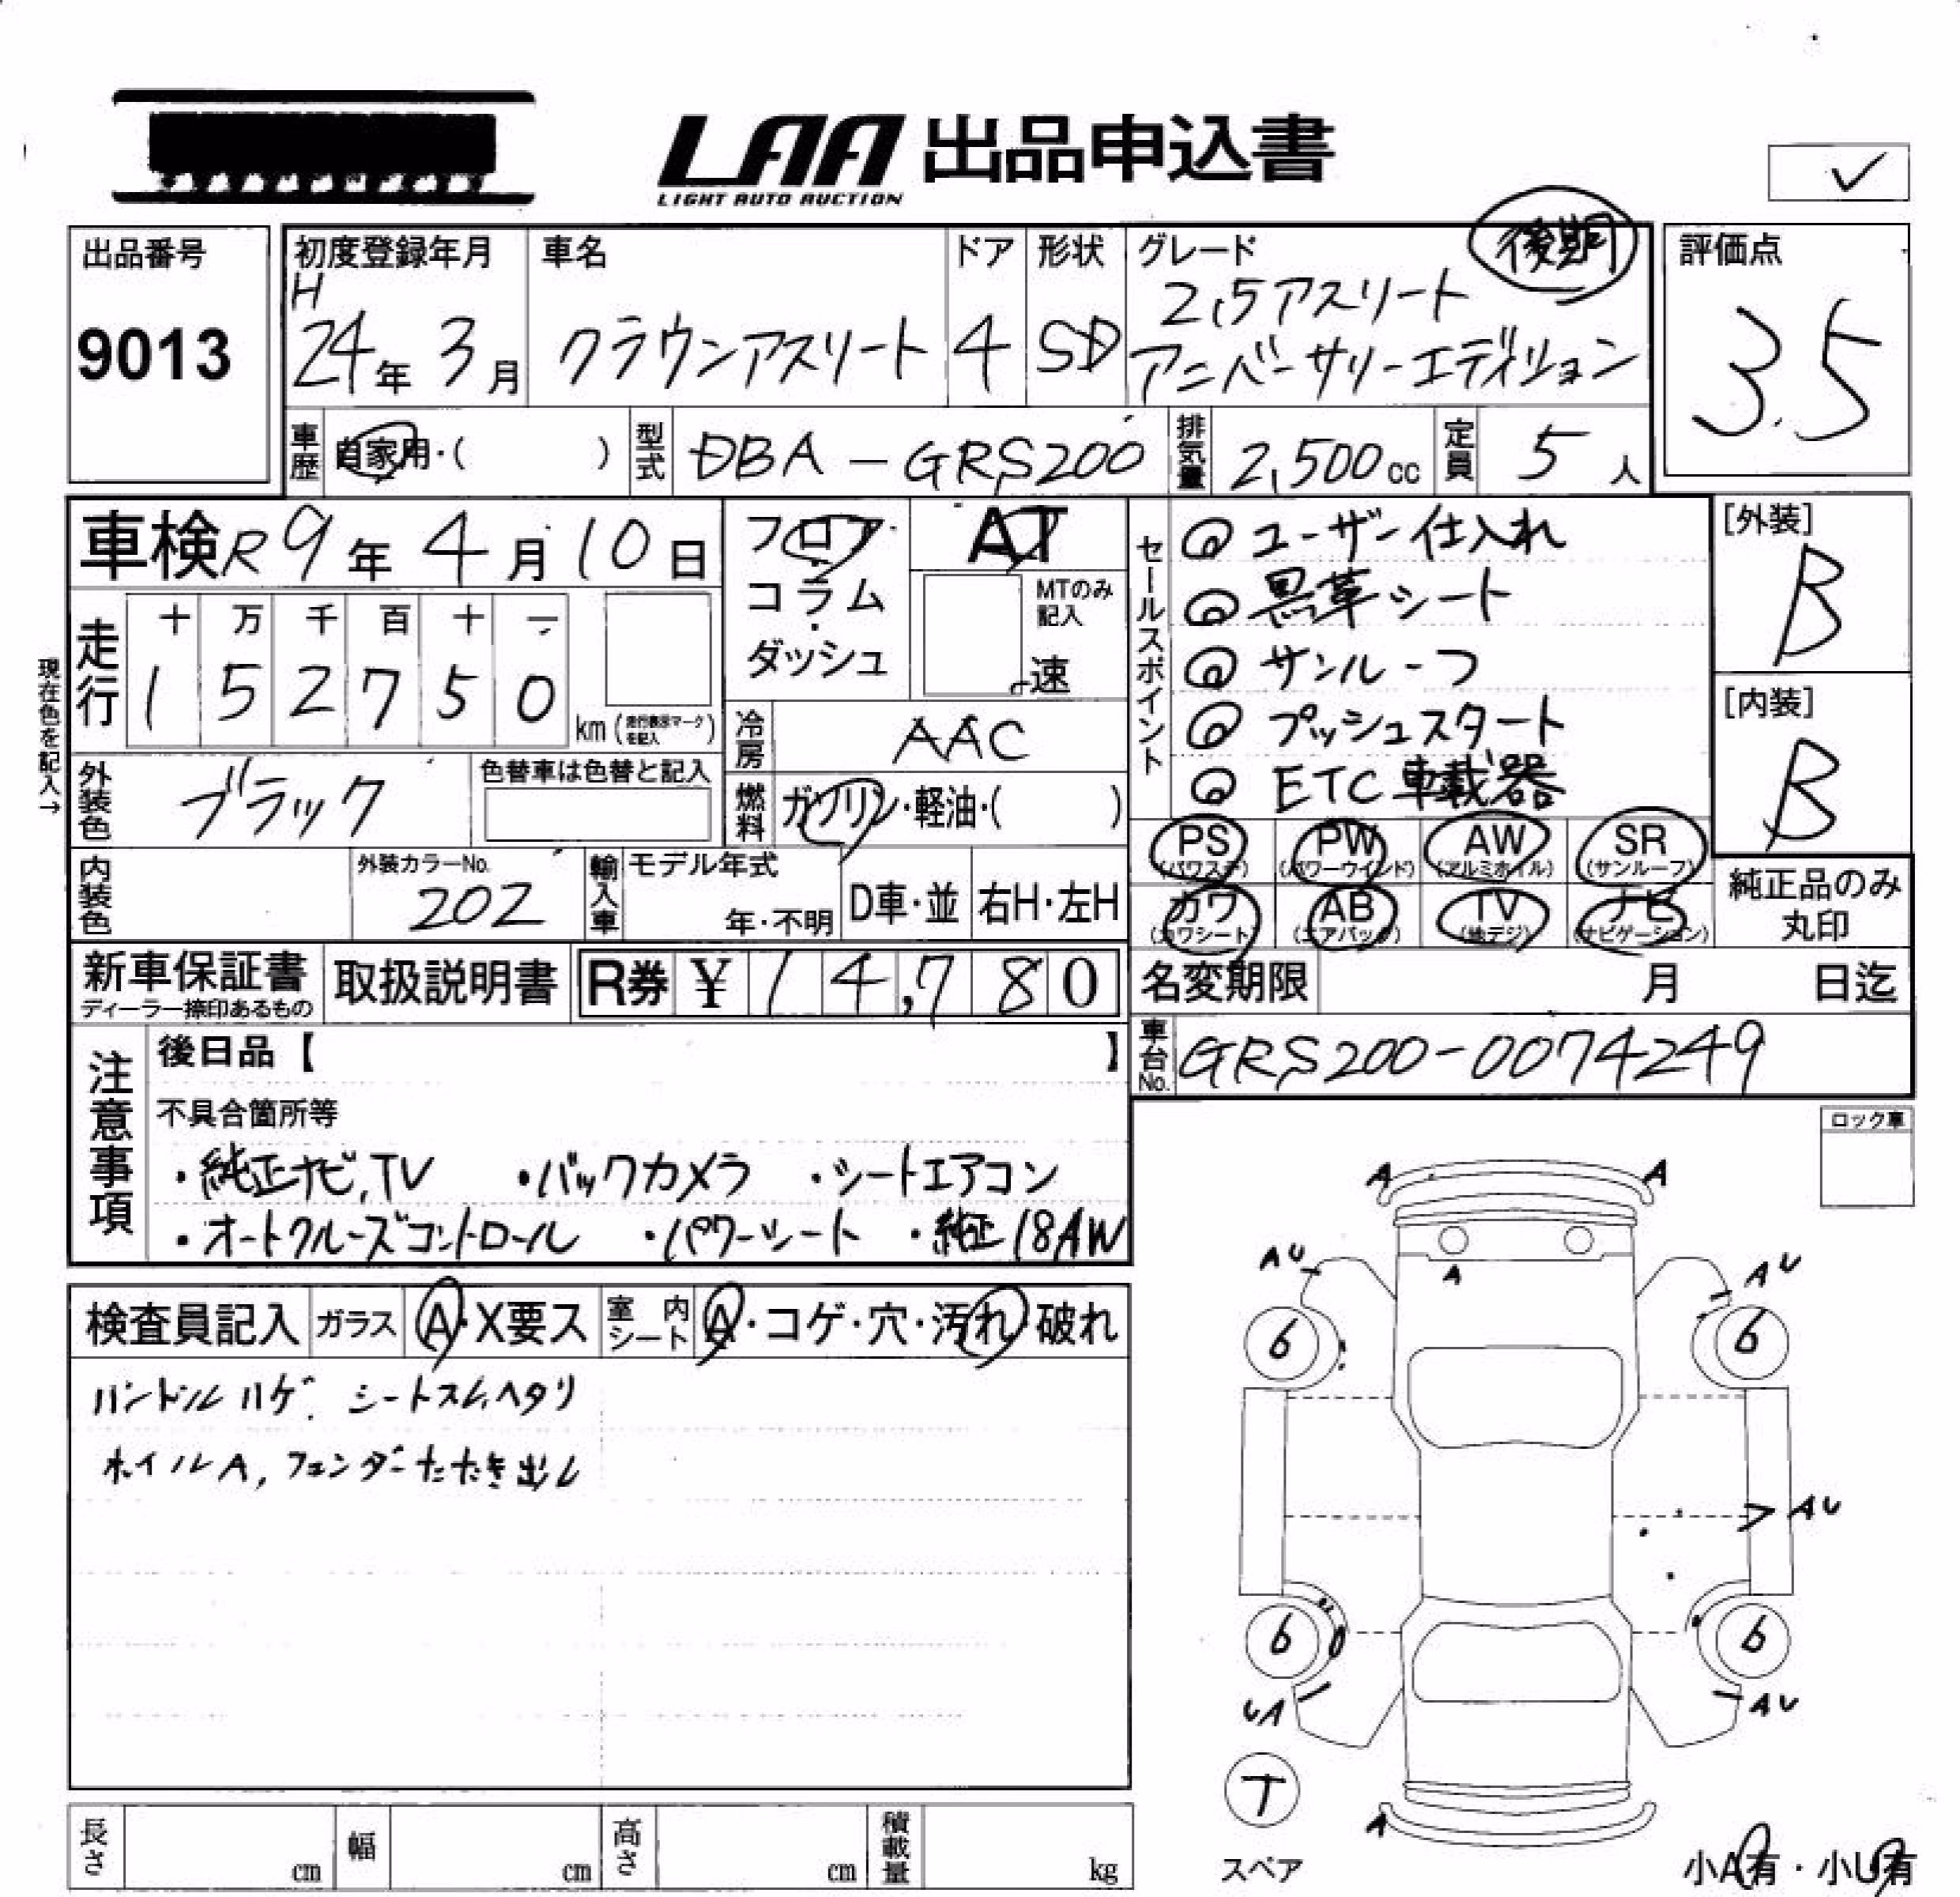 LAA 出品申込書
LIGHT AUTO AUCTION
✓
出品番号
9013
初度登録年月
H
24年 3月
車名
クラウンアスリート
ドア
4
形状
SD
グレード
後期
2,5アスリート
アニバーサリーエディション
評価点
3.5
車歴
自家用・( )
型式
DBA-GRS200
排気量
2,500cc
定員
5人
車検 R9年 4月 10日
フロア
コラム
・
ダッシュ
AT
MTのみ
記入
速
セールスポイント
@ ユーザー仕入れ
@ 黒革シート
@ サンルーフ
@ プッシュスタート
@ ETC 車載器
[外装]
B
[内装]
B
現在色を記入→
走行
十 万 千 百 十 一
1 5 2 7 5 0
km (走行表示マークを記入)
冷房
AAC
燃料
ガソリン・軽油・( )
外装色
ブラック
色替車は色替と記入
内装色
外装カラーNo.
202
輸入車
モデル年式
年・不明
D車・並
右H・左H
PS
(パワステ)
PW
(パワーウインド)
AW
(アルミホイル)
SR
(サンルーフ)
カワ
(カワシート)
AB
(エアバック)
TV
(地デジ)
ナビ
(ナビゲーション)
純正品のみ
丸印
新車保証書
ディーラー捺印あるもの
取扱説明書
R券 ¥ 14,780
名変期限 月 日迄
車台No.
GRS200-0074249
注意事項
後日品【 】
不具合箇所等
・純正ナビ,TV ・バックカメラ ・シートエアコン
・オートクルーズコントロール ・パワーシート ・純正18AW
ロック車
検査員記入
ガラス
A・X要ス
室内
シート
A・コゲ・穴・汚れ・破れ
ハンドルハゲ. シートスレ,ヘタリ
ホイルA, フェンダーたたき出し
A A
AU A AU
6 6
AU
6 6
UA AU
T
スペア
A
小A有・小U有
長さ cm
幅 cm
高さ cm
積載量 kg